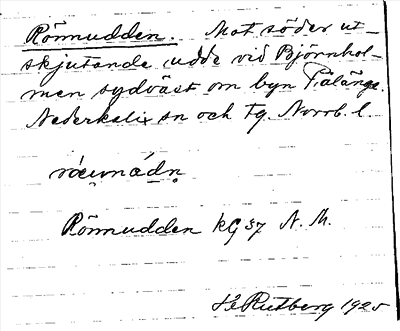 Rönnudden. Mot söder ut-
skjutande udde vid Björnhol-
men sydväst om byn Pålänge.
Nederkalix sn och tg. Norrb. l.
Rönnudden kG 37 N. M.
Rutberg 1925